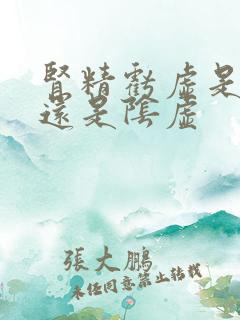 腎精虧虛是
還是陰虛
張大鵬
未經同意禁止轉載